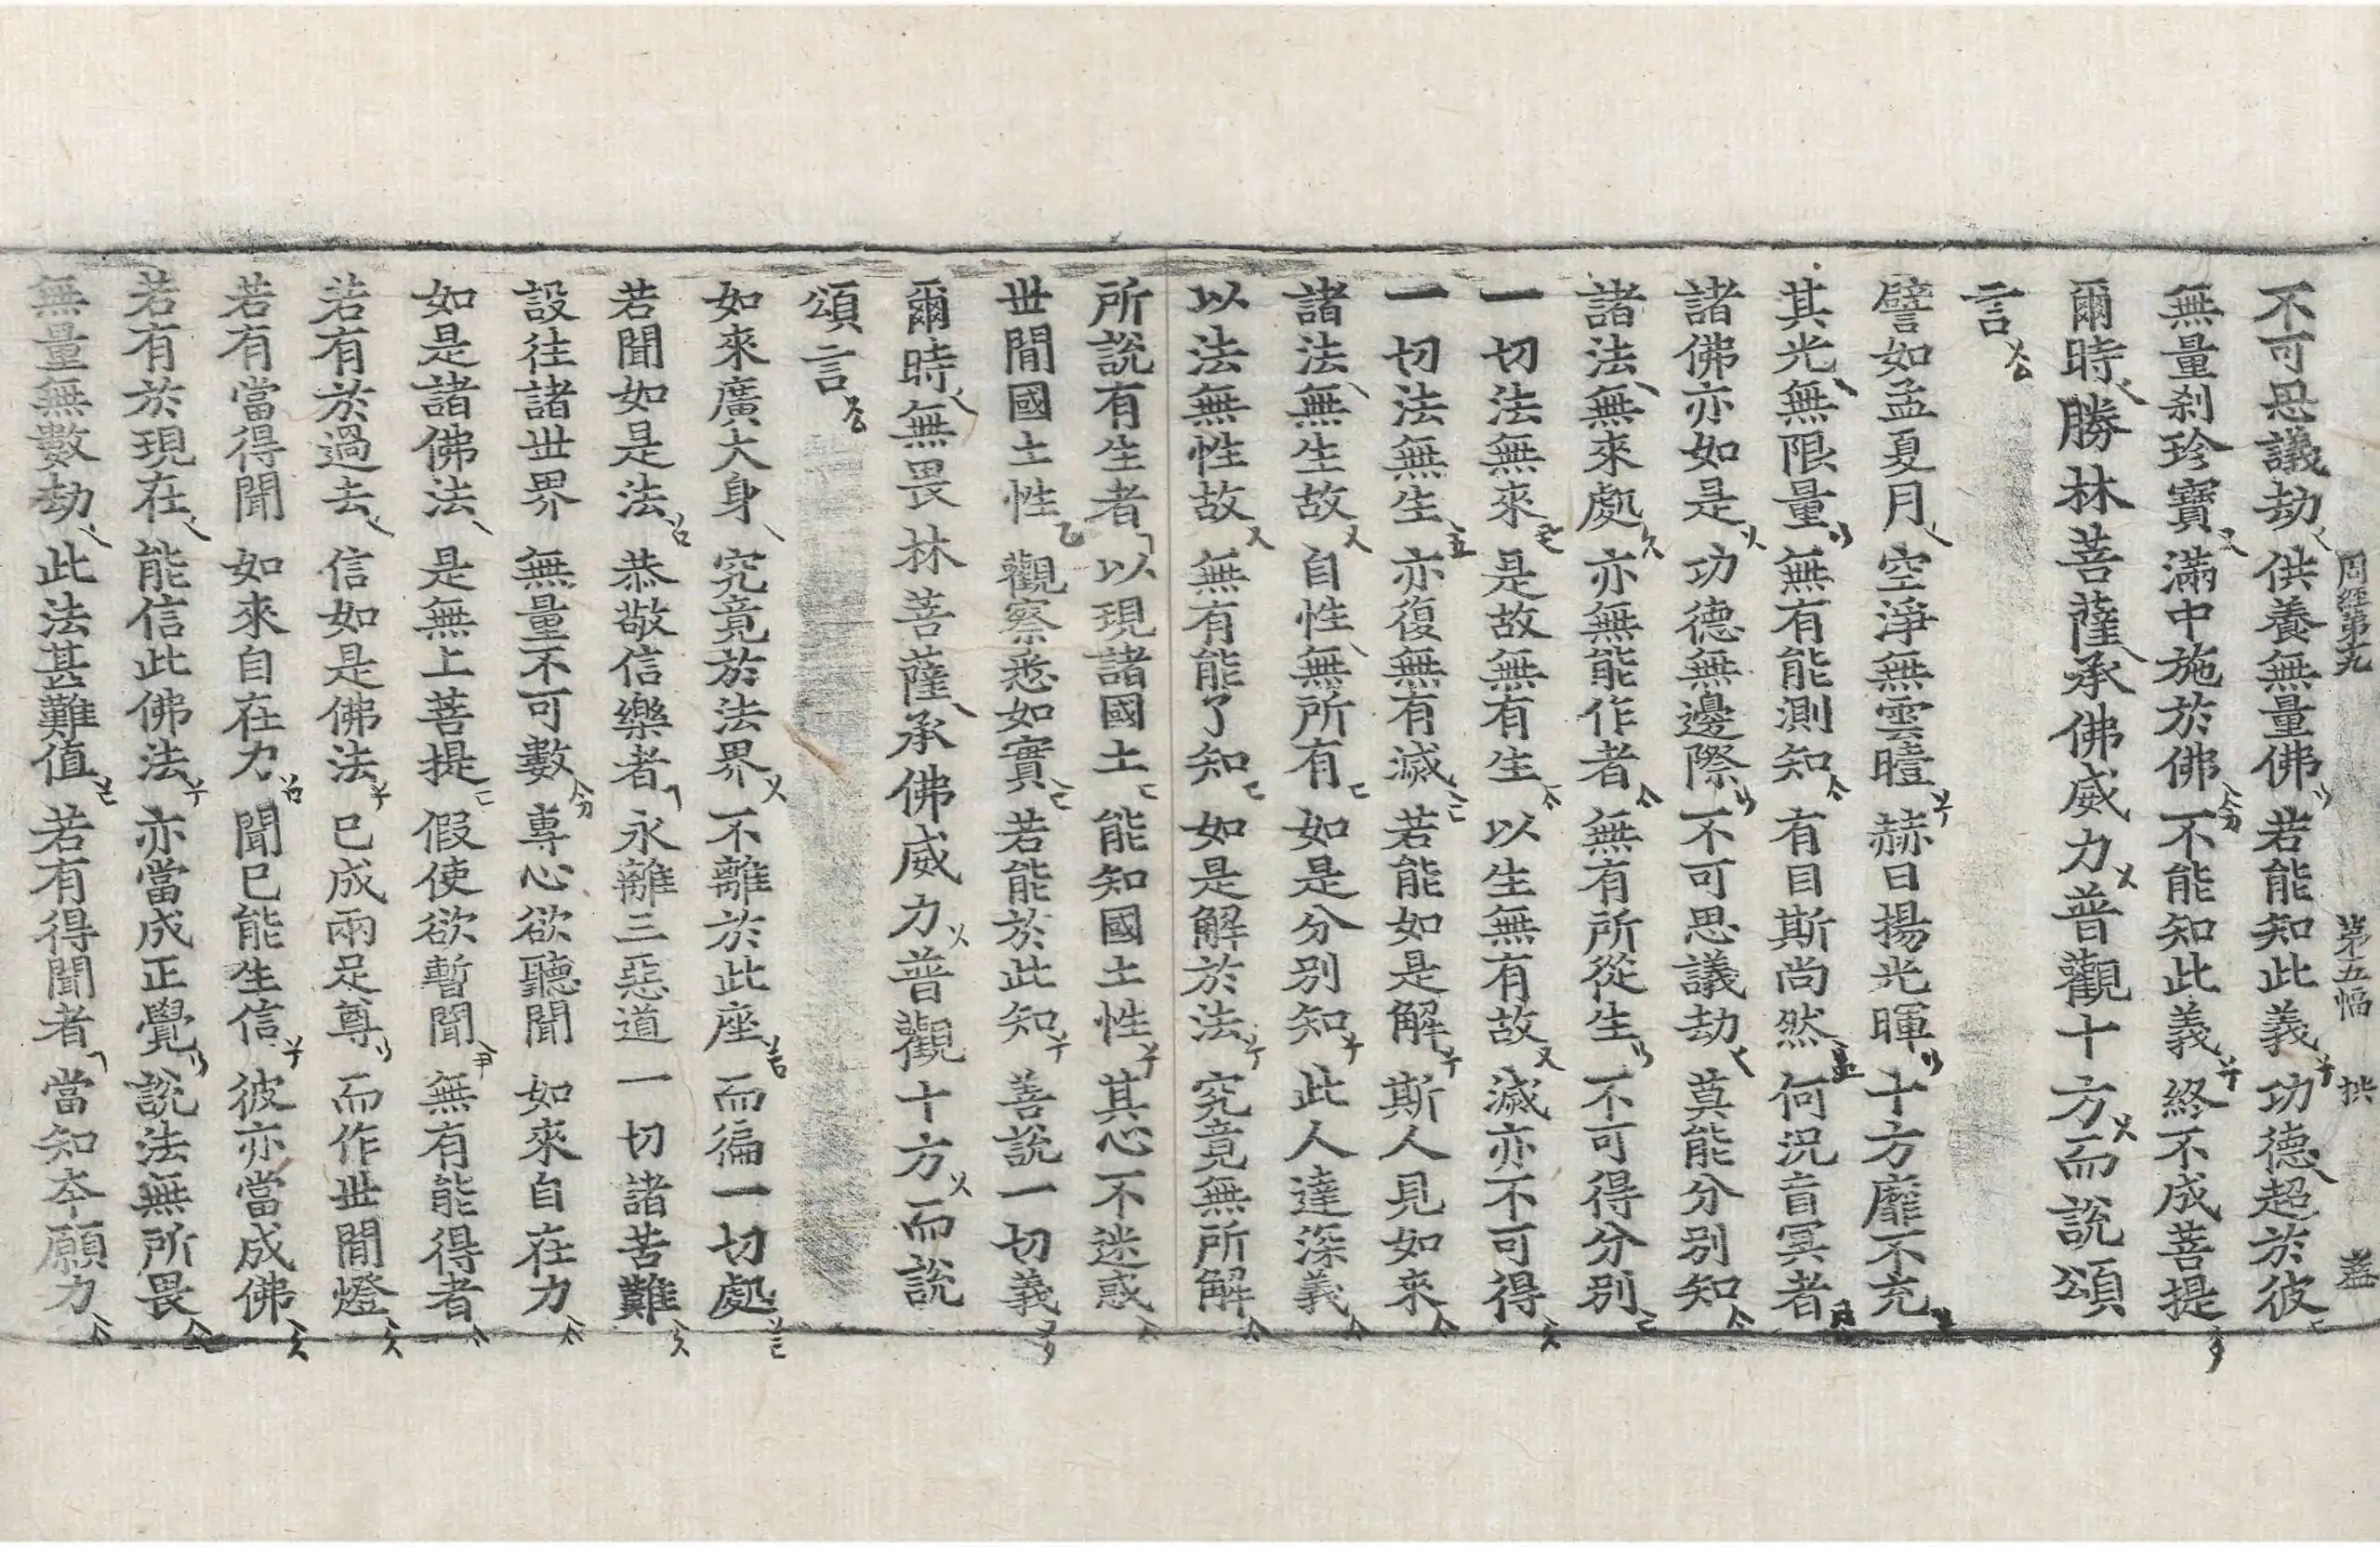 周經第十九　第五幅　拱
不可思議劫　供養無量佛　若能知此義　功德超於彼
無量刹珍寶　滿中施於佛　不能知此義　終不成菩提
爾時勝林菩薩承佛威力普觀十方而說頌
言
譬如孟夏月　空淨無雲曀　赫日揚光暉　十方靡不充
其光無限量　無有能測知　有目斯尚然　何況盲冥者
諸佛亦如是　功德無邊際　不可思議劫　莫能分別知
諸法無來處　亦無能作者　無有所從生　不可得分別
一切法無來　是故無有生　以生無有故　滅亦不可得
一切法無生　亦復無有滅　若能如是解　斯人見如來
諸法無生故　自性無所有　如是分別知　此人達深義
以法無性故　無有能了知　如是解於法　究竟無所解
所說有生者　以現諸國土　能知國土性　其心不迷惑
世間國土性　觀察悉如實　若能於此知　善說一切義
爾時無畏林菩薩承佛威力普觀十方而說
頌言
如來廣大身　究竟於法界　不離於此座　而徧一切處
若聞如是法　恭敬信樂者　永離三惡道　一切諸苦難
設往諸世界　無量不可數　專心欲聽聞　如來自在力
如是諸佛法　是無上菩提　假使欲暫聞　無有能得者
若有於過去　信如是佛法　已成兩足尊　而作世間燈
若有當得聞　如來自在力　聞已能生信　彼亦當成佛
若有於現在　能信此佛法　亦當成正覺　說法無所畏
無量無數劫　此法甚難值　若有得聞者　當知本願力